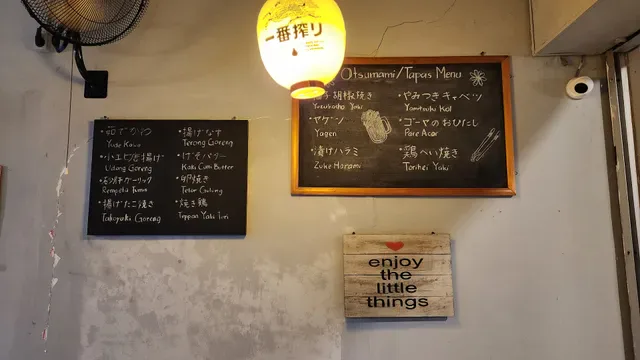 一番搾り
Otsumami/Tapas Menu
胡椒焼き
Yuzukosho Yaki
・ヤゲン
Yagen
・漬けハラミ
Zuke Harami
・やみつきキャベツ
Yamitsuki Kol
・ゴーヤのおひたし
Pare Acar
・鶏へい焼き
Torihei Yaki
・茹でかわ
Yude Kawa
・小エビ唐揚げ
Udang Goreng
・砂肝ガーリック
Rempela Tumis
・揚げたこ焼き
Takoyaki Goreng
・揚げなす
Terong Goreng
・げそバター
Kaki Cumi Butter
・卵焼き
Telur Gulung
・焼き鶏
Teppan Yaki Tori
enjoy
the
little
things